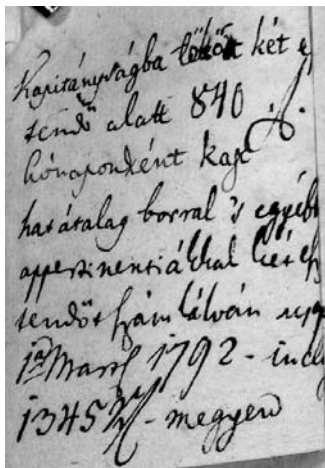 Kapitányságba két e
tendő alatt 840 f.
hónaponként kap
határalag borral 's egyébb
appertinentiákkal két esz
tendőt számlálván
1ma Marty 1792 - 
1345 - megyen